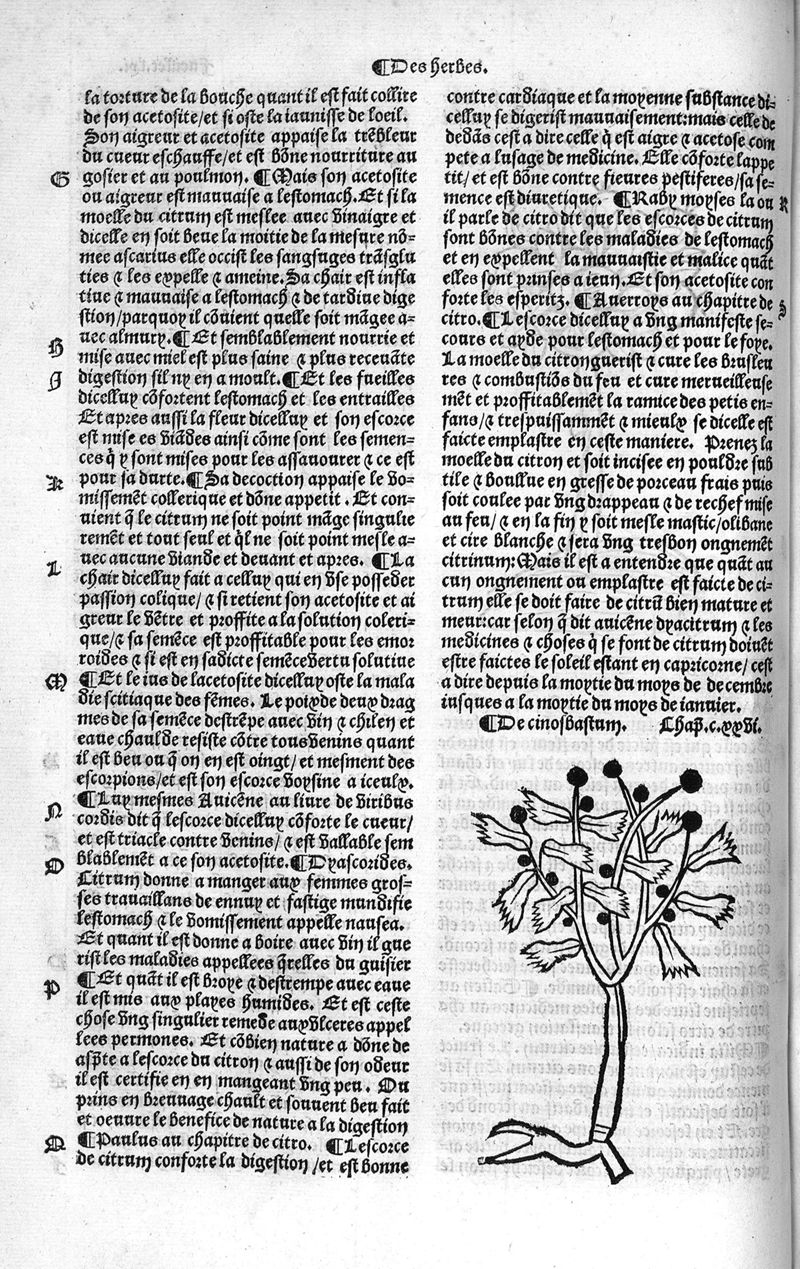 ¶Des herbes.
la torture de la bouche quant il est fait collire
de son acetosite/et si oste la iaunisse de loeil.
Son aigreur et acetosite appaise la trẽbleur
du cueur eschauffe/et est bõne nourriture au
G gosier et au poulmon. ¶Mais son acetosite
ou aigreur est mauuaise a lestomach. Et si la
moelle du citrum est meslee auec vinaigre et
dicelle en soit beue la moitie de la mesure nõ-
mee ascarius elle occist les sangsuges trãsglu
ties ⁊ les expelle ⁊ ameine. Sa chair est infla
tiue ⁊ mauuaise a lestomach ⁊ de tardiue dige
stion/parquoy il cõuient quelle soit mãgee a-
H uec almury. ¶Et semblablement nourrie et
mise auec miel est plus saine ⁊ plus receuãte
I digestion sil ny en a moult. ¶Et les fueilles
dicelluy cõfortent lestomach et les entrailles
Et apres aussi la fleur dicelluy et son escorce
est mise es viãdes ainsi cõme sont les semen-
ces q̃ y sont mises pour les assauourer ⁊ ce est
K pour sa durte. ¶Sa decoction appaise le vo-
missemẽt collerique et dõne appetit. Et con-
uient q̃ le citrum ne soit point mãge singulie
remẽt et tout seul et q̃l ne soit point mesle a-
L uec aucune viande et deuant et apres. ¶La
chair dicelluy fait a celluy qui en vse posseder
passion colique/ ⁊ si retient son acetosite et ai
greur le vẽtre et proffite a la solution coleri-
que/⁊ sa semẽce est proffitable pour les emor
roides ⁊ si est en sadicte semẽce vertu solutiue
M ¶Et le ius de lacetosite dicelluy oste la mala
die scitiaque des fẽmes. Le poix de deux drag
mes de sa semẽce destrẽpe auec vin ⁊ chilen et
eaue chaulde resiste cõtre tous venins quant
il est beu ou q̃ on en est oingt/ et mesment des
escorpions/et est son escorce voysine a iceulx.
N ¶Luy mesmes Auicẽne au liure de viribus
cordis dit q̃ lescorce dicelluy cõforte le cueur/
et est triacle contre venins/ ⁊ est vallable sem
O blablemẽt a ce son acetosite. ¶Dyascorides.
Citrum donne a manger aux femmes gros-
ses trauaillans de ennuy et fastige mundifie
lestomach ⁊ le vomissement appelle nausea.
Et quant il est donne a boire auec vin il gue
rist les maladies appellees q̃relles du guisier
P ¶Et quãt il est broye ⁊ destrempe auec eaue
il est mis aux playes humides. Et est ceste
chose vng singulier remede aux vlceres appel
lees permones. Et cõbien nature a dõne de
asp̃te a lescorce du citron ⁊ aussi de son odeur
il est certifie en en mangeant vng peu. Ou
prins en breuuage chault et souuent beu fait
et oeuure le benefice de nature a la digestion
Q ¶Paulus au chapitre de citro. ¶Lescorce
de citrum conforte la digestion /et est bonne
contre cardiaque et la moyenne substance di-
celluy se digerist mauuaisement: mais celle de
dedãs cest a dire celle q̃ est aigre ⁊ acetose com
pete a lusage de medicine. Elle cõforte lappe
tit/ et est bõne contre fieures pestiferes/sa se-
mence est diuretique. ¶Raby moyses la ou R
il parle de citro dit que les escorces de citrum
sont bõnes contre les maladies de lestomach
et en expellent la mauuaistie et malice quãt
elles sont prinses a ieun. Et son acetosite con
forte les esperitz. ¶Auerroys au chapitre de S
citro. ¶Lescorce dicelluy a vng manifeste se-
cours et ayde pour lestomach et pour le foye.
La moelle du citron guerist ⁊ cure les brusleu
res ⁊ combustiõs du feu et cure merueilleuse
mẽt et proffitablemẽt la ramice des petis en-
fans/⁊ trespuissammẽt ⁊ mieulx se dicelle est
faicte emplastre en ceste maniere. Prenez la
moelle du citron et soit incisee en pouldre sub
tile ⁊ boullue en gresse de porceau frais puis
soit coulee par vng drappeau ⁊ de rechef mise
au feu/ ⁊ en la fin y soit mesle mastic/olibane
et cire blanche ⁊ sera vng tresbon ongnemẽt
citrinum: Mais il est a entendre que quãt au
cun ongnement ou emplastre est faicte de ci-
trum elle se doit faire de citrũ bien mature et
meur:car selon q̃ dit auicẽne dyacitrum ⁊ les
medicines ⁊ choses q̃ se font de citrum doiuẽt
estre faictes le soleil estant en capricorne/ cest
a dire depuis la moytie du moys de decembre
iusques a la moytie du moys de ianuier.
¶De cinosbastum. Chap̃.c.xxvi.